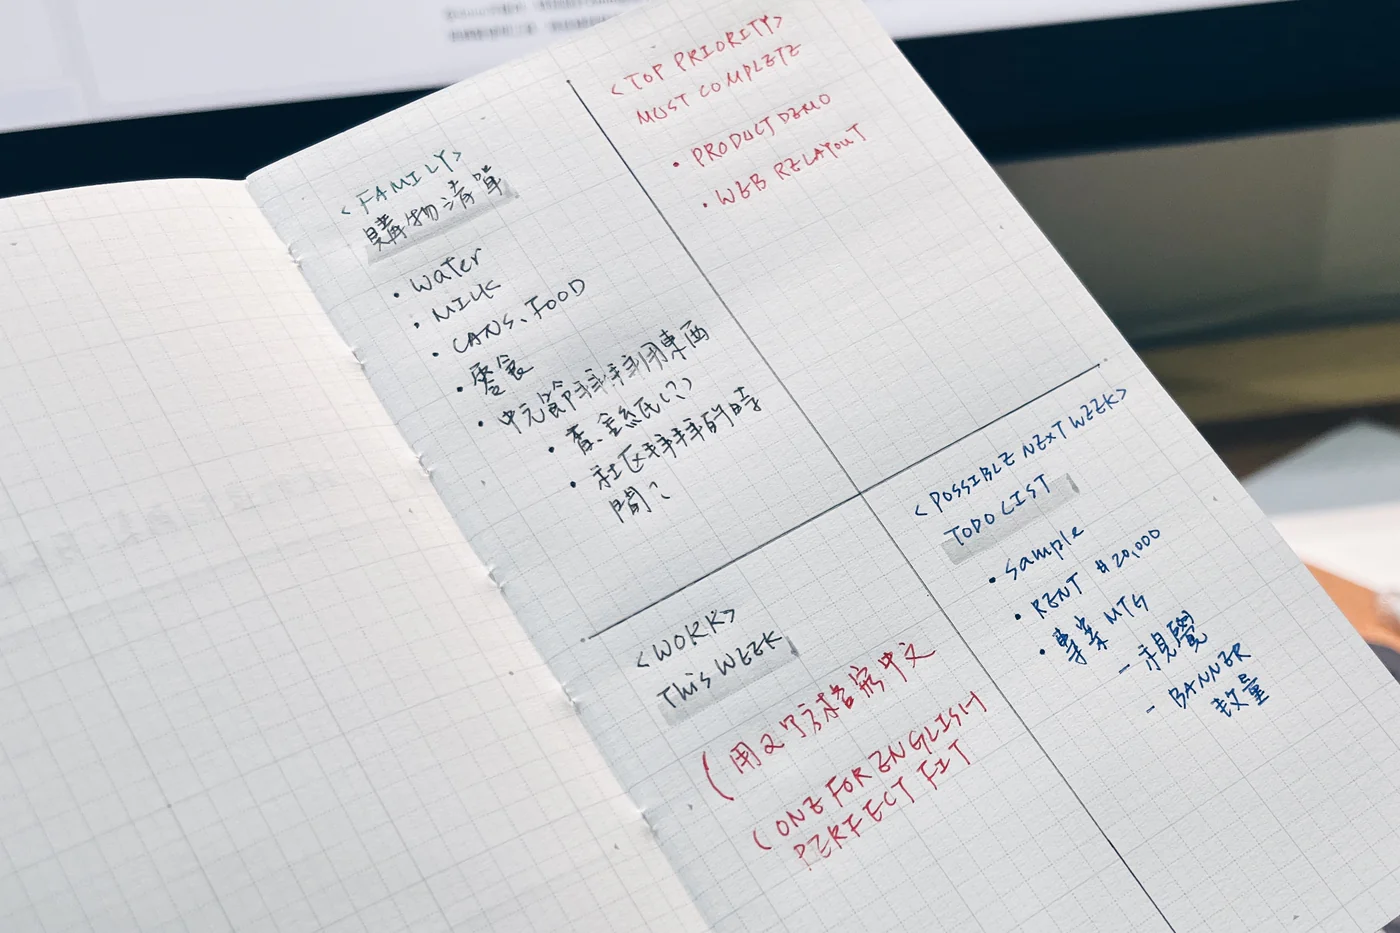 <FAMILY>
購物清單
• Water
• MILK
• CANS、FOOD
• 零食
• 中元節拜拜用東西
• 香、金紙(?)
• 社区拜拜的時
間?
<TOP PRIORITY>
MUST COMPLETE
• PRODUCT DEMO
• WEB RELAYOUT
<WORK>
This WEEK
(用2个方格寫中文
(ONE FOR ENGLISH
PERFECT FIT
<POSSIBLE NEXT WEEK>
TODO LIST
• sample
• RENT 20,000
• 專案 MTG
- 視覺
- BANNER
数量